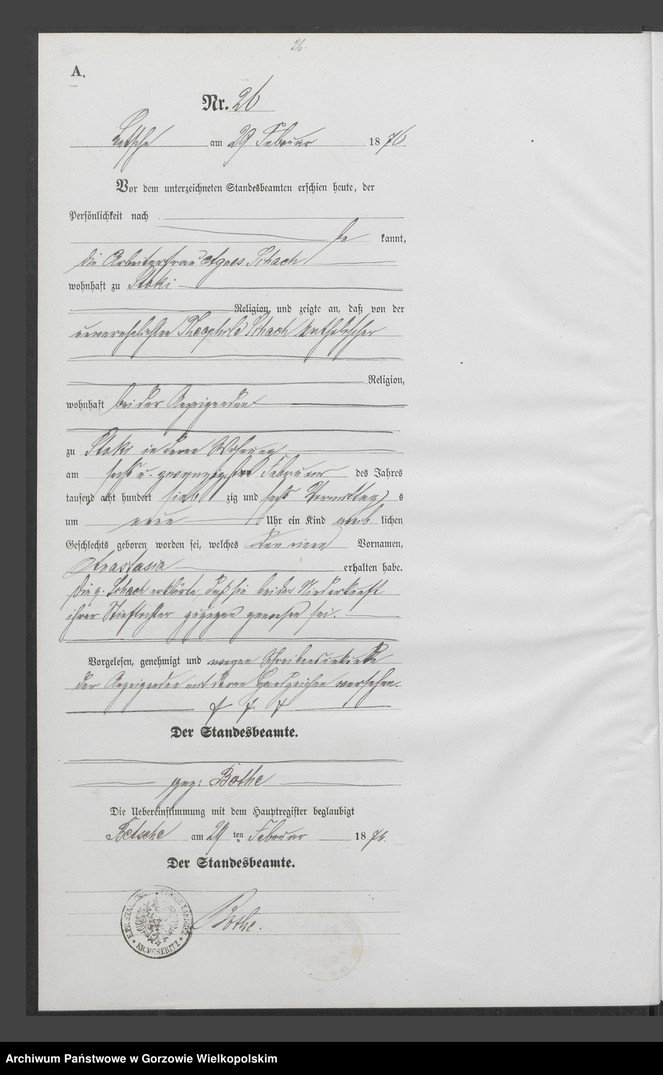 26.
A.
Nr. 26
Betsche am 29 Februar 1876.
Vor dem unterzeichneten Standesbeamten erschien heute, der
Persönlichkeit nach
be kannt,
die Arbeiterfrau Agnes Schach
wohnhaft zu Stoki
Religion, und zeigte an, daß von der
unverehelichten Theophile Schach katholischer
Religion,
wohnhaft bei der Anzeigenden
zu Stoki in deren Wohnung
am sechs u. zwanzigsten Februar des Jahres
tausend acht hundert sieb zig und sechs Vormittag s
um neun Uhr ein Kind weib lichen
Geschlechts geboren worden sei, welches den einen Vornamen,
Anastasia erhalten habe.
Die p. Schach erklärte, daß sie bei der Niederkunft
ihrer Stieftochter zugegen gewesen sei.
Vorgelesen, genehmigt und wegen Schreibensunkunde
der Anzeigenden mit deren Handzeichen versehen.
† † †
Der Standesbeamte.
gez: Bothe
Die Uebereinstimmung mit dem Hauptregister beglaubigt
Betsche am 29 ten Februar 1876.
Der Standesbeamte.
Bothe.
KR. MESERITZ
Archiwum Państwowe w Gorzowie Wielkopolskim